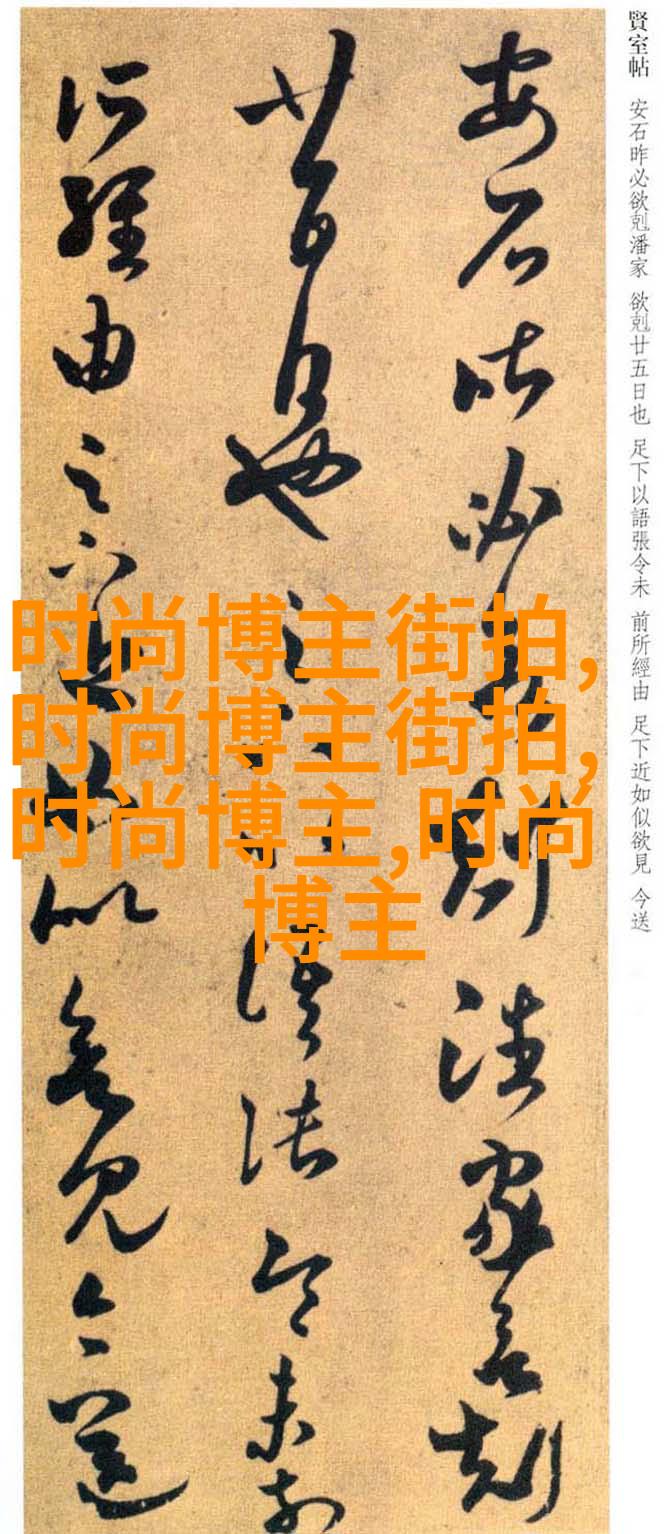 賢室帖 安石昨必欲剋潘家 欲剋廿五日也 足下以語張令未 前所經由 足下近如似欲見 今送
安石昨必欲剋潘家欲剋
廿五日也足下以語張令未前
所經由足下近如似欲見今送
时尚博主街拍,
时尚博主街拍,
时尚博主,时尚
博主